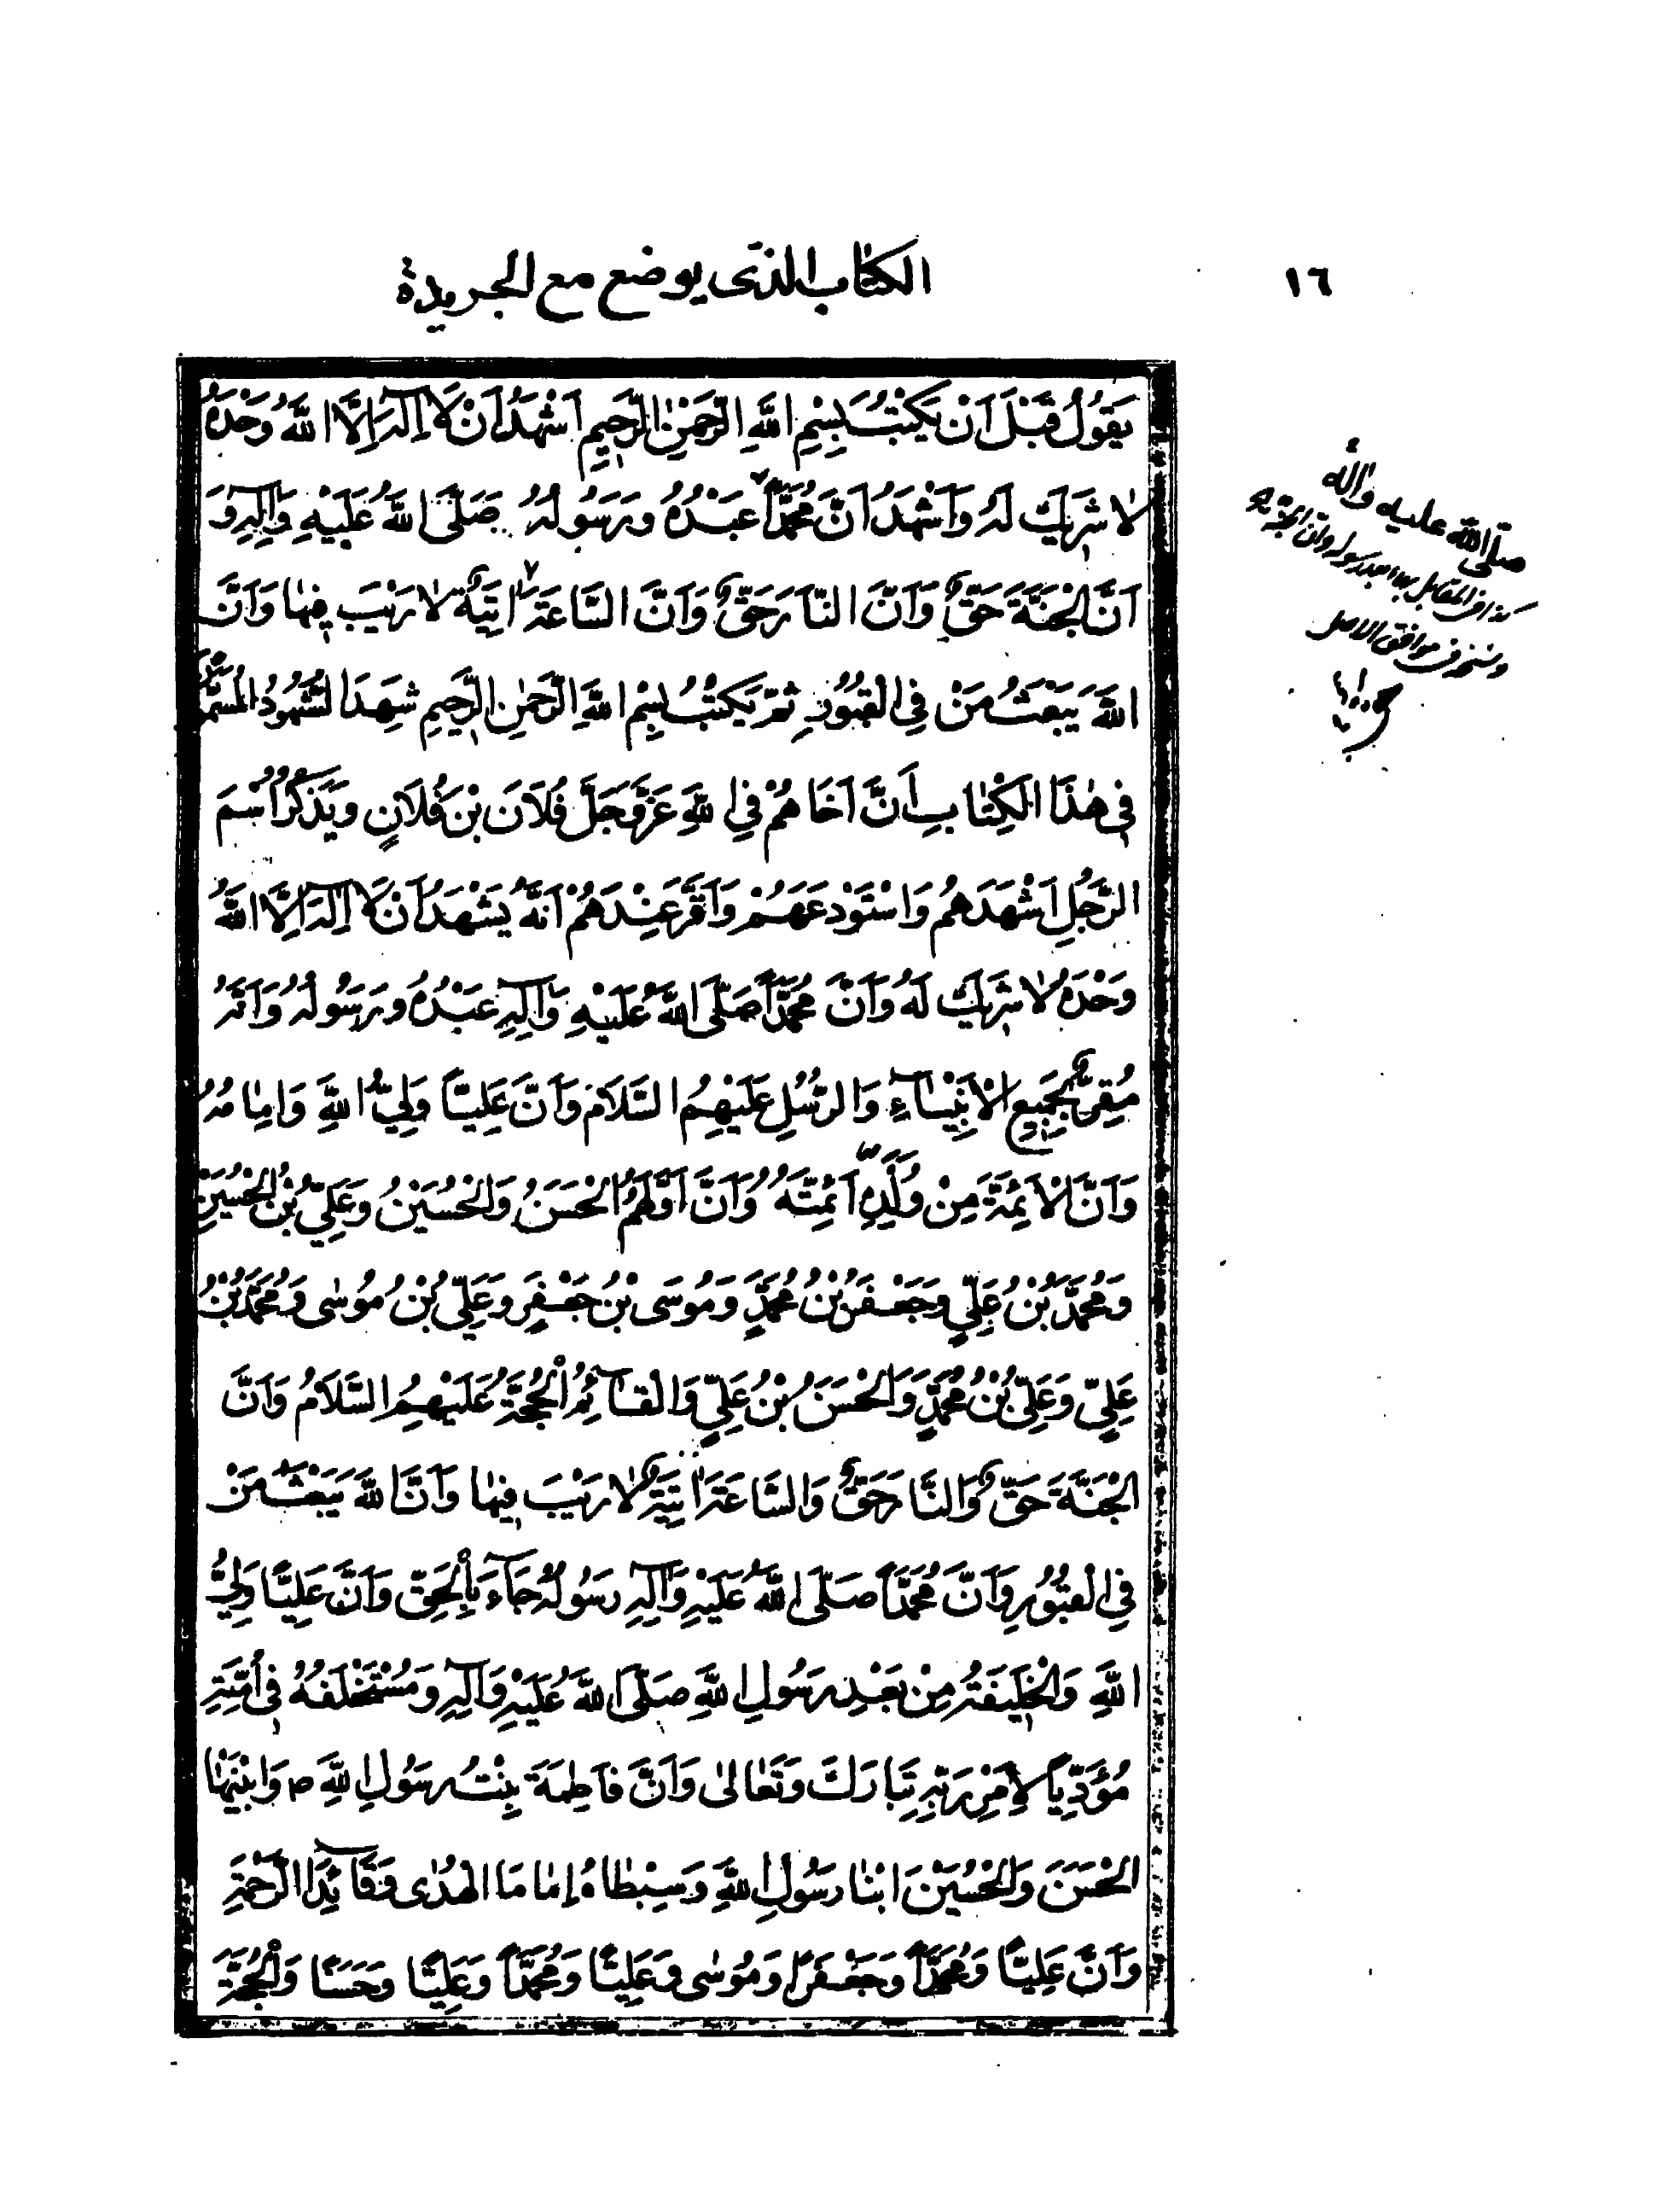 ١٦
الكتاب الذى يوضع مع الجريدة
يَقُولُ قَبْلَ اَنْ يَكْتُبَ بِسْمِ اللَّهِ الرَّحْمٰنِ الرَّحِيمِ اَشْهَدُ اَنْ لَا اِلٰهَ اِلَّا اللَّهُ وَحْدَهُ
لَا شَرِيكَ لَهُ وَاَشْهَدُ اَنَّ مُحَمَّدًا عَبْدُهُ وَرَسُولُهُ صَلَّى اللَّهُ عَلَيْهِ وَآلِهِ وَ
اَنَّ الْجَنَّةَ حَقٌّ وَاَنَّ النَّارَ حَقٌّ وَاَنَّ السَّاعَةَ اٰتِيَةٌ لَا رَيْبَ فِيهَا وَاَنَّ
اللَّهَ يَبْعَثُ مَنْ فِى الْقُبُورِ ثُمَّ يَكْتُبُ بِسْمِ اللَّهِ الرَّحْمٰنِ الرَّحِيمِ شَهِدَ الشُّهُودُ الْمُسَمَّوْنَ
فِى هٰذَا الْكِتَابِ اَنَّ اَخَاهُمْ فِى اللَّهِ عَزَّ وَجَلَّ فُلَانَ بْنَ فُلَانٍ وَيَذْكُرُ اسْمَ
الرَّجُلِ اَشْهَدَهُمْ وَاسْتَوْدَعَهُمْ وَاَقَرَّ عِنْدَهُمْ اَنَّهُ يَشْهَدُ اَنْ لَا اِلٰهَ اِلَّا اللَّهُ
وَحْدَهُ لَا شَرِيكَ لَهُ وَاَنَّ مُحَمَّدًا صَلَّى اللَّهُ عَلَيْهِ وَآلِهِ عَبْدُهُ وَرَسُولُهُ وَاَنَّهُ
مُقِرٌّ بِجَمِيعِ الْاَنْبِيَاءِ وَالرُّسُلِ عَلَيْهِمُ السَّلَامُ وَاَنَّ عَلِيًّا وَلِيُّ اللَّهِ وَاِمَامُهُ
وَاَنَّ الْاَئِمَّةَ مِنْ وُلْدِهِ اَئِمَّتُهُ وَاَنَّ اَوَّلَهُمُ الْحَسَنُ وَالْحُسَيْنُ وَعَلِيُّ بْنُ الْحُسَيْنِ
وَمُحَمَّدُ بْنُ عَلِيٍّ وَجَعْفَرُ بْنُ مُحَمَّدٍ وَمُوسَى بْنُ جَعْفَرٍ وَعَلِيُّ بْنُ مُوسٰى وَمُحَمَّدُ بْنُ
عَلِيٍّ وَعَلِيُّ بْنُ مُحَمَّدٍ وَالْحَسَنُ بْنُ عَلِيٍّ وَالْقَائِمُ الْحُجَّةُ عَلَيْهِمُ السَّلَامُ وَاَنَّ
الْجَنَّةَ حَقٌّ وَالنَّارَ حَقٌّ وَالسَّاعَةَ اٰتِيَةٌ لَا رَيْبَ فِيهَا وَاَنَّ اللَّهَ يَبْعَثُ مَنْ
فِى الْقُبُورِ وَاَنَّ مُحَمَّدًا صَلَّى اللَّهُ عَلَيْهِ وَآلِهِ رَسُولُهُ جَاءَ بِالْحَقِّ وَاَنَّ عَلِيًّا وَلِيُّ
اللَّهِ وَالْخَلِيفَةُ مِنْ بَعْدِ رَسُولِ اللَّهِ صَلَّى اللَّهُ عَلَيْهِ وَآلِهِ وَمُسْتَخْلَفُهُ فِى اُمَّتِهِ
مُؤَدِّيًا لِاَمْرِ رَبِّهِ تَبَارَكَ وَتَعَالىٰ وَاَنَّ فَاطِمَةَ بِنْتُ رَسُولِ اللَّهِ ص وَابْنَيْهَا
الْحَسَنَ وَالْحُسَيْنَ ابْنَا رَسُولِ اللَّهِ وَسِبْطَاهُ اِمَامَا الْهُدٰى وَقَائِدَا الرَّحْمَةِ
وَاَنَّ عَلِيًّا وَمُحَمَّدًا وَجَعْفَرًا وَمُوسٰى وَعَلِيًّا وَمُحَمَّدًا وَعَلِيًّا وَحَسَنًا وَالْحُجَّةَ
صلى الله عليه وآله
موافق الاصل